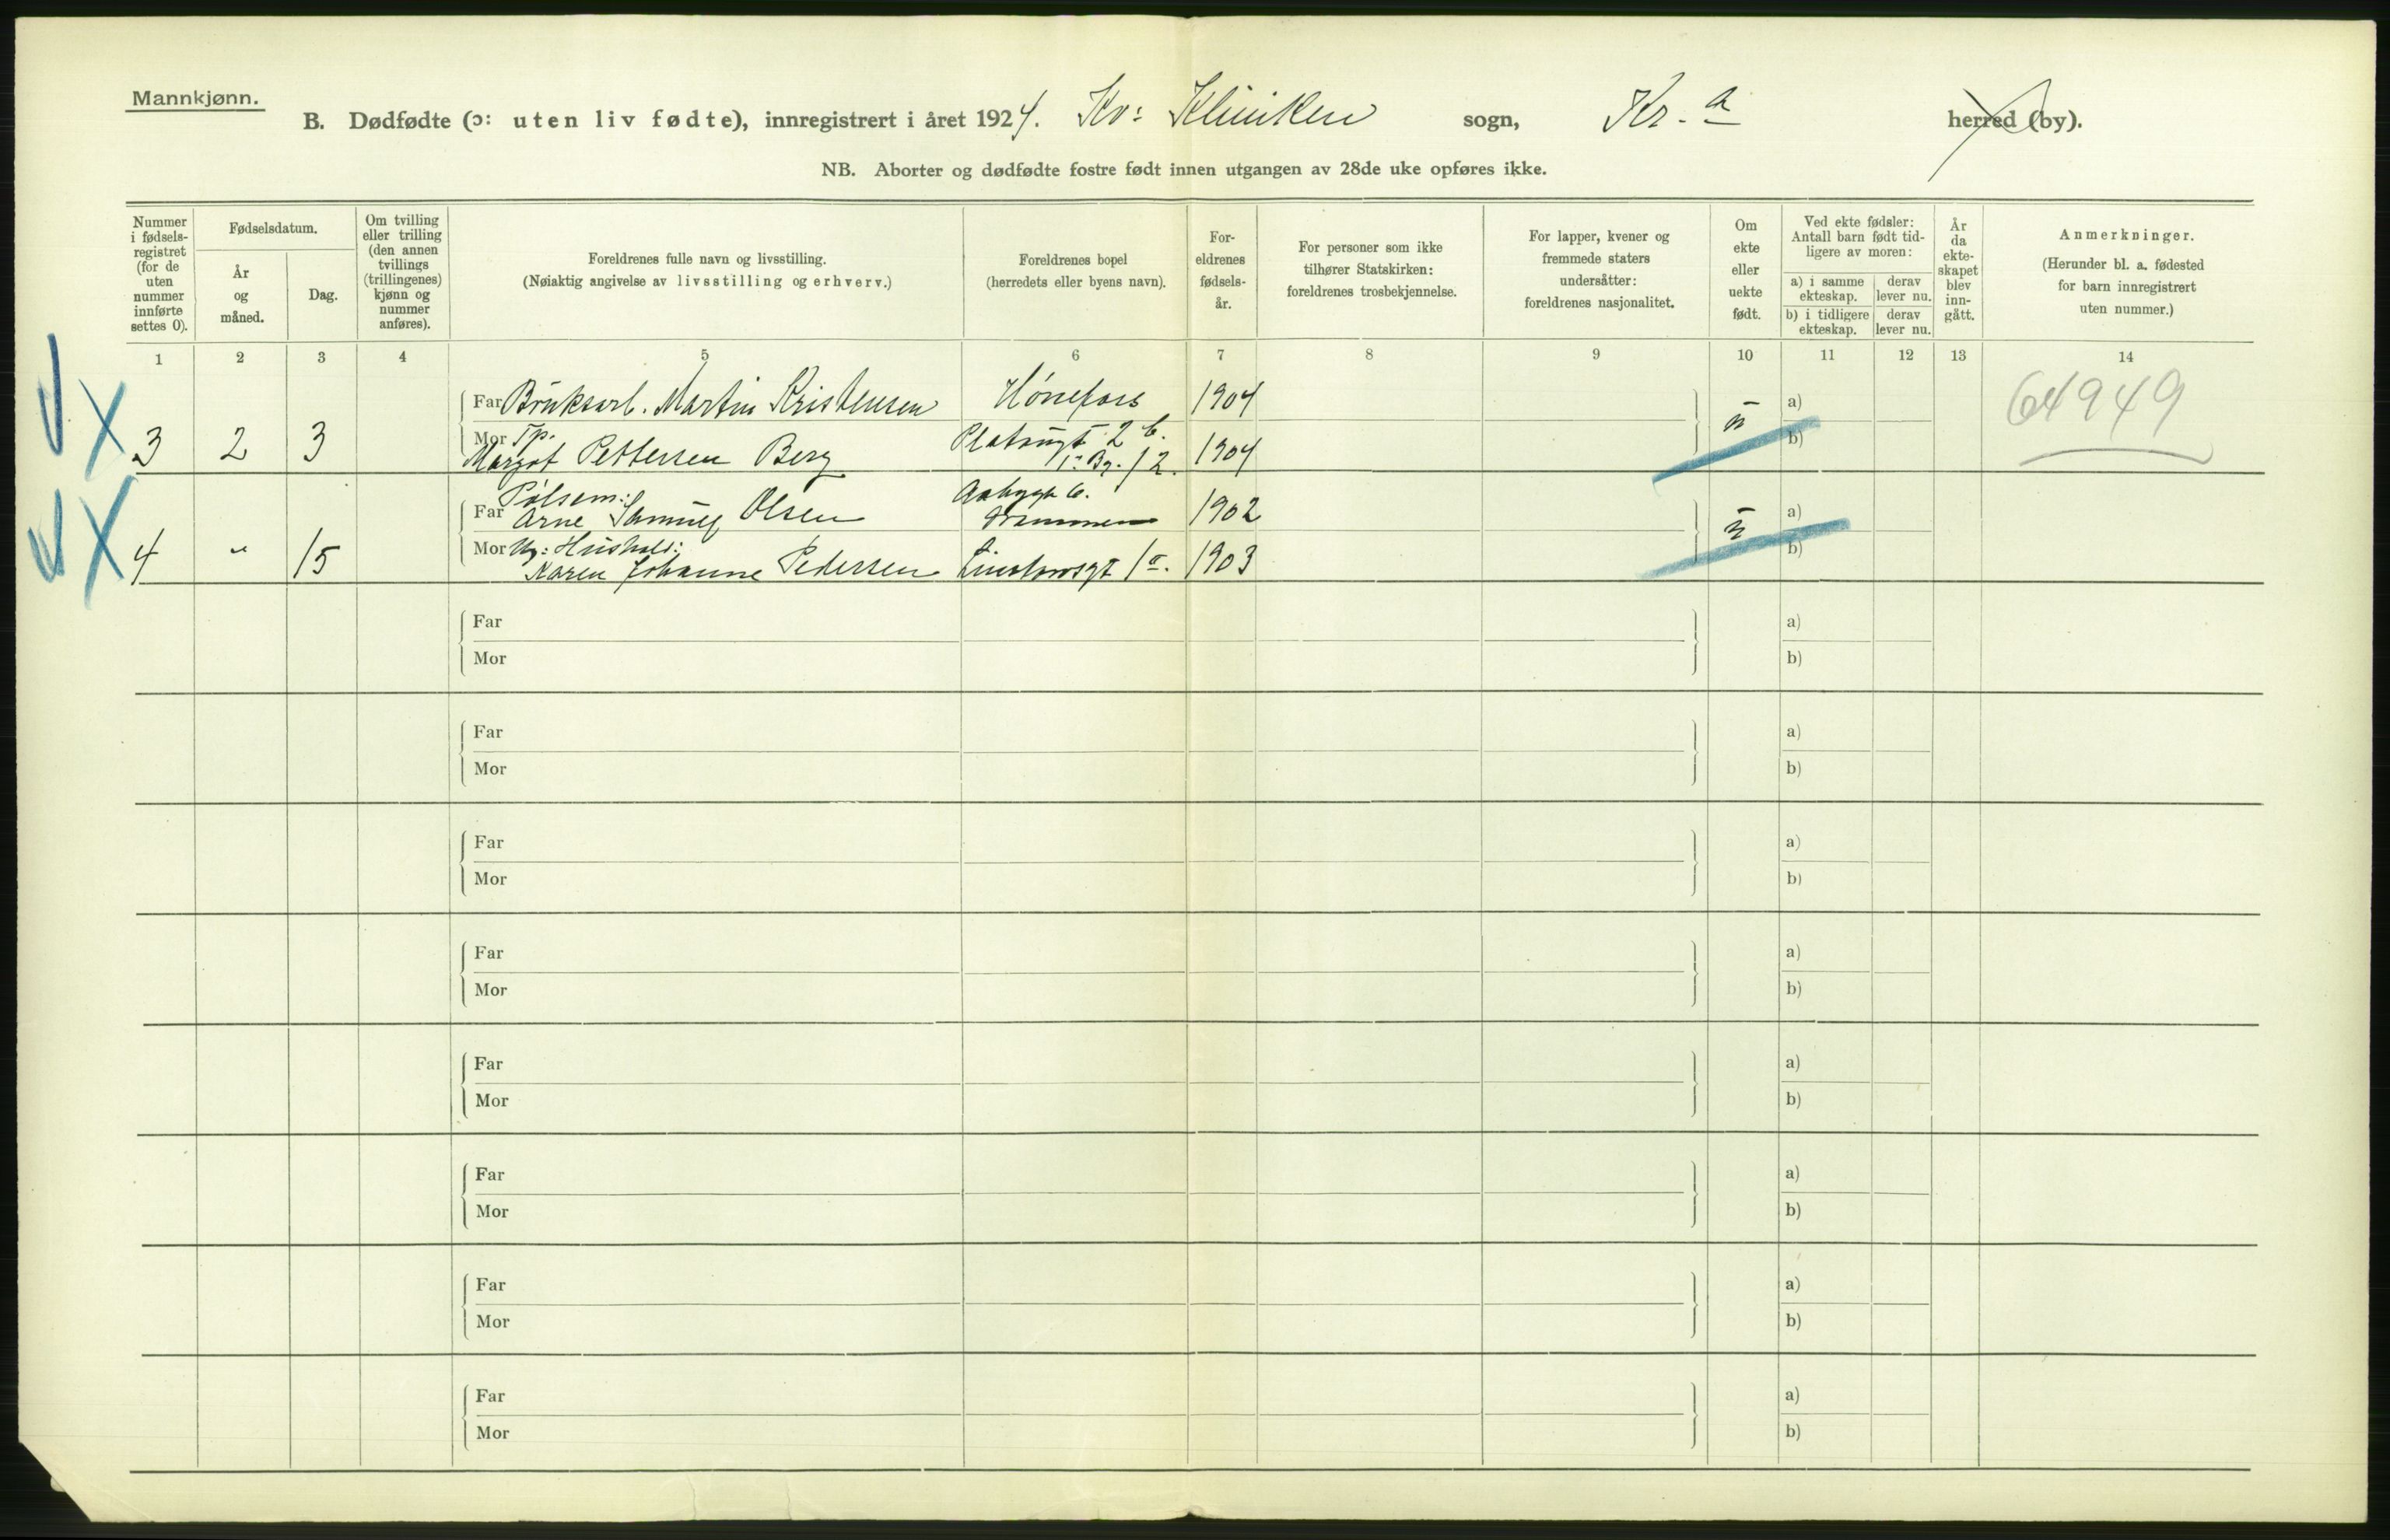 Mannkjønn.
B. Dødfødte (ɔ: uten liv fødte), innregistrert i året 1924. Kv: Kliniken sogn, Kr.a herred (by).
NB. Aborter og dødfødte fostre født innen utgangen av 28de uke opføres ikke.
Nummer i fødsels-registret (for de uten nummer innførte settes 0).
Fødselsdatum.
År og måned.
Dag.
Om tvilling eller trilling (den annen tvillings (trillingenes) kjønn og nummer anføres).
Foreldrenes fulle navn og livsstilling.
(Nøiaktig angivelse av livsstilling og erhverv.)
Foreldrenes bopel
(herredets eller byens navn).
For-eldrenes fødsels-år.
For personer som ikke tilhører Statskirken: foreldrenes trosbekjennelse.
For lapper, kvener og fremmede staters undersåtter: foreldrenes nasjonalitet.
Om ekte eller uekte født.
Ved ekte fødsler: Antall barn født tid-ligere av moren:
a) i samme ekteskap.
derav lever nu.
b) i tidligere ekteskap.
derav lever nu.
År da ekte-skapet blev inn-gått.
Anmerkninger.
(Herunder bl. a. fødested for barn innregistrert uten nummer.)
1 2 3 4 5 6 7 8 9 10 11 12 13 14
Far Bruksarb. Martin Kristensen Hønefoss 1904 a) 64949
3 2 3 Mor Tp. Margot Pettersen Berg 2 b. 1904 u b)
Far Pølsem: Arne Olsen Drammen 1902 a)
4 " 15 Mor Ug: Hushold: Karen Johanne Pedersen Linstowsgt 1 1903 u b)
Far a)
Mor b)
Far a)
Mor b)
Far a)
Mor b)
Far a)
Mor b)
Far a)
Mor b)
Far a)
Mor b)
Far a)
Mor b)
Far a)
Mor b)